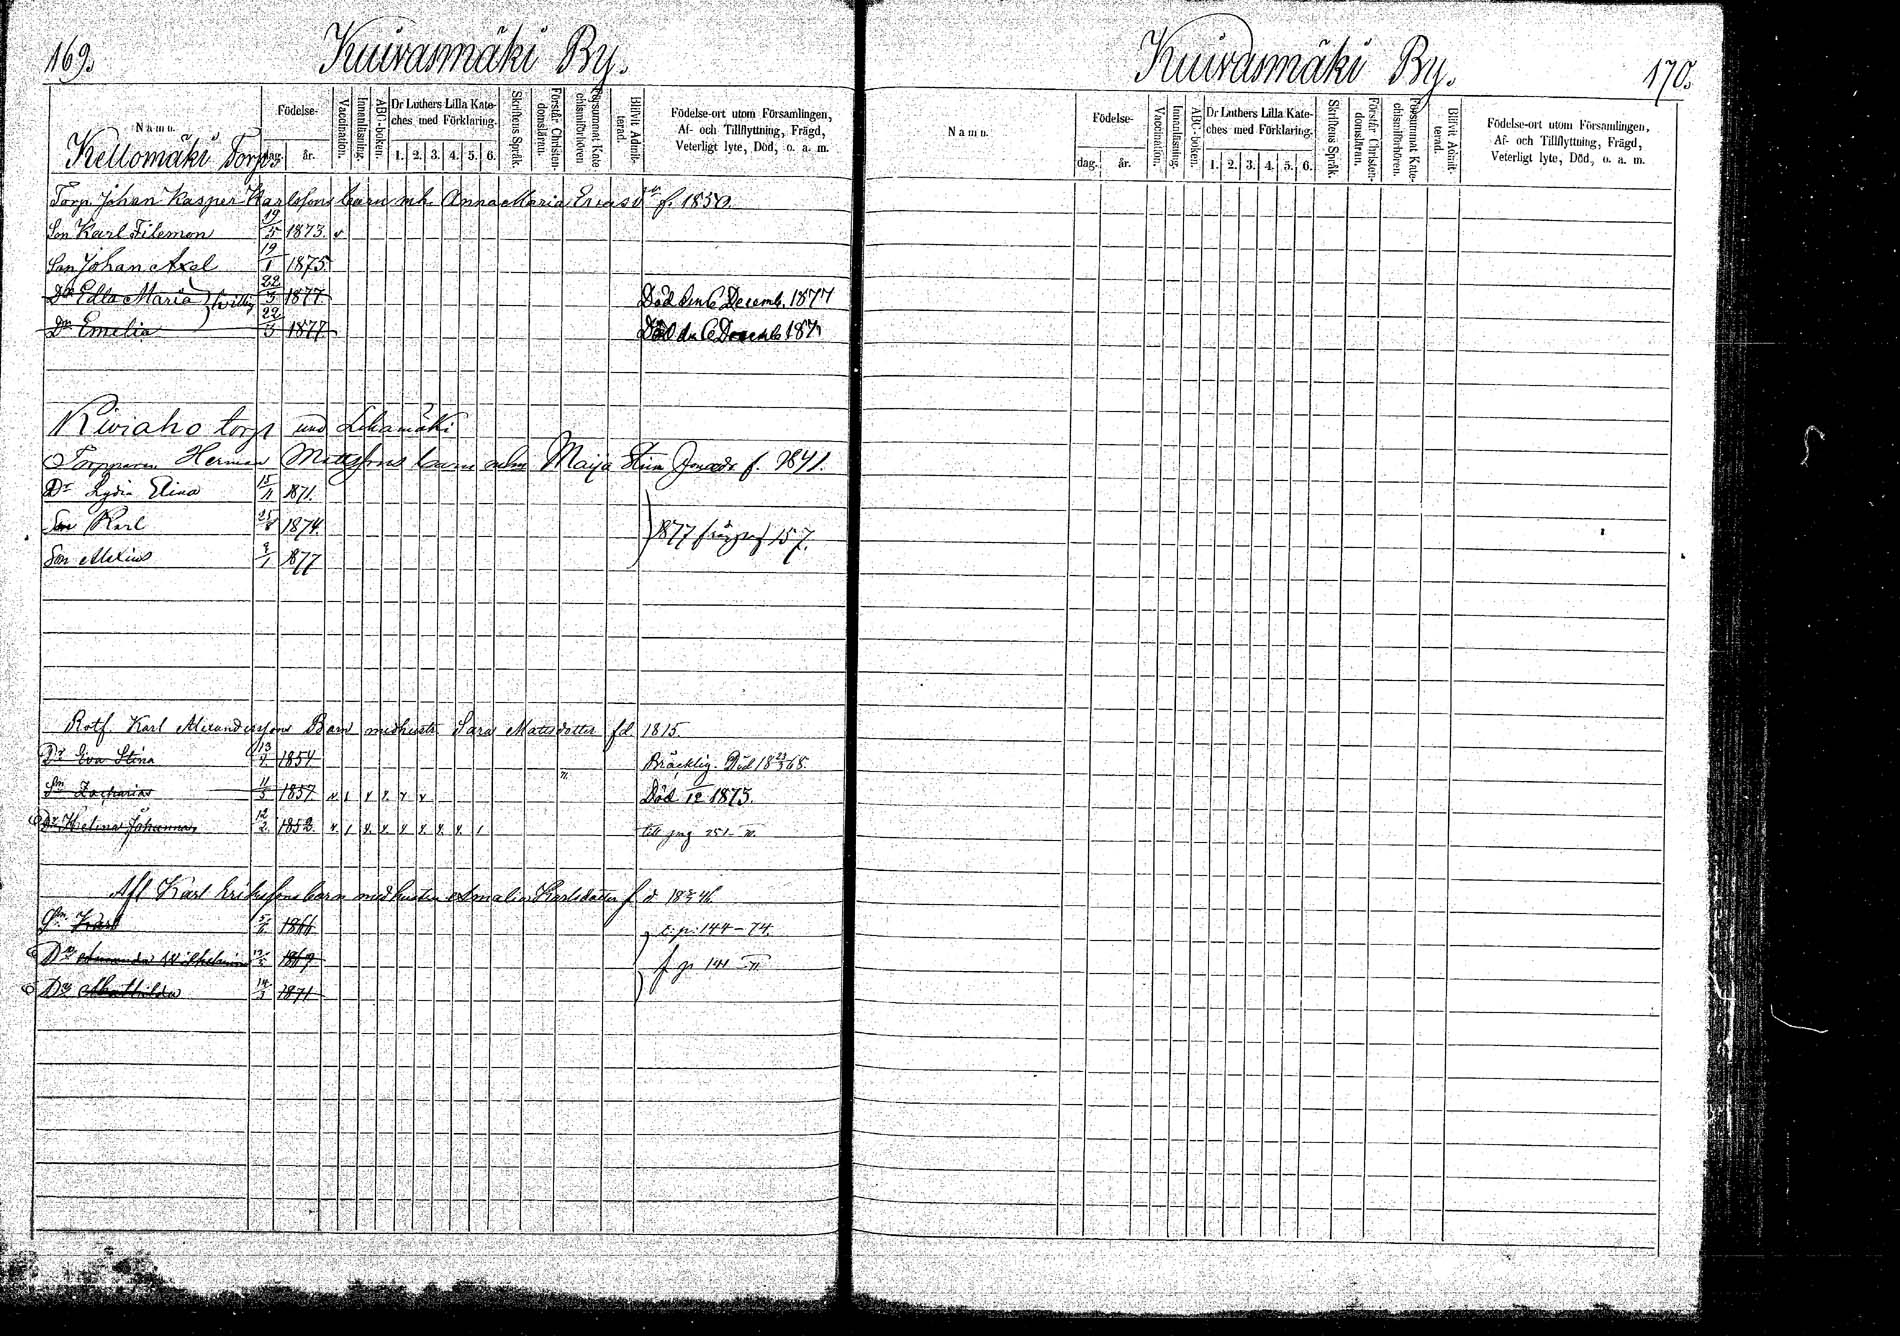 169.
Kuivasmäki By.
Namn.
Födelse-
dag. år.
Vaccination.
Innanläsning.
ABC-boken.
Dr Luthers Lilla Kateches med Förklaring.
1. 2. 3. 4. 5. 6.
Skriftens Språk.
Förstår Christendomsläran.
Försummat Katechismiförhören
Blifvit Admitterad.
Födelse-ort utom Församlingen,
Af- och Tillflyttning, Frägd,
Veterligt lyte, Död, o. a. m.
Kellomäki Torp
Torp. Johan Kasper Karlssons barn mh. Anna Maria f. 1850.
Son Karl Filemon 19/5 1873. v
Son Johan Axel 19/1 1875.
Dr Edla Maria 22/3 1877. Död den 6 Decemb. 1877
Dr Emelia 22/3 1877. Död den 6 Decemb 187
Kiviaho torp und Lihamäki
Torpparen Herman Mattssons barn mhu Maija Stina Jonaadr f. 1841.
Dr Lydia Elina 15/11 1871.
Son Karl 25/8 1874.
1877 från pag 157.
Son Alexius 9/1 1877
Rotf. Karl Alexanderssons Barn med hustr. Sara Mattsdotter fd. 1815.
Dr Eva Stina 13/2. 1854. Bräcklig. Död 18 23/3 68.
Son Zacharias 11/5 1857. Död /12 1873.
Dr Helena Johanna 12/2. 1852. till pag 251
Afl Karl Erikssons barn med hustru Amalia Karlsdotter f d 1834
Son Karl 1866 t. p. 144-74.
Dr Amanda Wilhelmina 1869 f p 141
Dr Mathilda 14/3 1871
Kuivasmäki By.
170.
Namn.
Födelse-
dag. år.
Vaccination.
Innanläsning.
ABC-boken.
Dr Luthers Lilla Kateches med Förklaring.
1. 2. 3. 4. 5. 6.
Skriftens Språk.
Förstår Christendomsläran.
Försummat Katechismiförhören.
Blifvit Admitterad.
Födelse-ort utom Församlingen,
Af- och Tillflyttning, Frägd,
Veterligt lyte, Död, o. a. m.